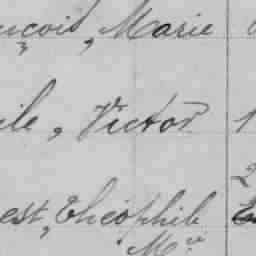 ncois, Marie
ile, Victor 1
est, Théophile
Mie